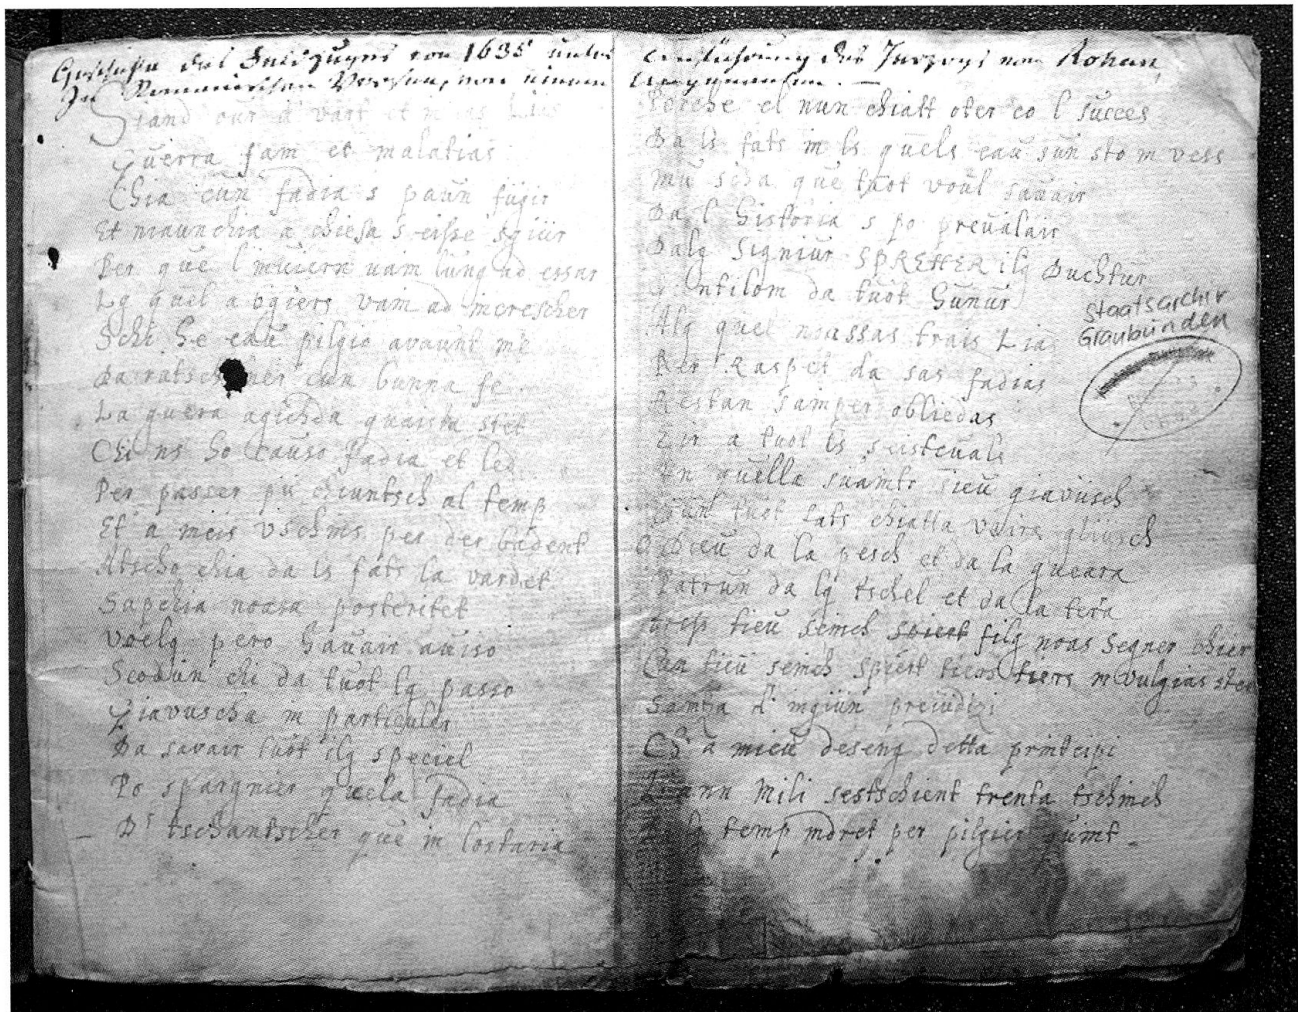 Geschichte des Feldzuges von 1635 unter
In Romanischen Versen, von einem
Stand our d' vart et
Guerra fam et malatias
Chia cun fadia s paun fugir
Et maunchia a chiesa s eisse sgiür
Per que l' muiern vam lung ad essar
Lg quel a ogiers vam ad increscher
Schi he eau pilgio avaunt me
cun bunna fe
La guera agiida quaista stet
Chi ns ho causo fadia et led
Per passer pü chiuntsch al temp
Et a meis vschins per der badent
Atscho chia da ls fats la vardet
Sapchia noasa posteritet
Voelg pero havair aviso
Scodün chi da tuot lg passo
Giavuscha in particular
Da savair tuot ilg speciel
Po spargnier quela fadia
Dr tschantscher que in l'ostaria
Anführung des Herzogs von Rohan,
Perche el nun chiatt oter co l succes
Da ls fats in ls quels eau sun sto m vess
Mu scha que tuot voul savair
Da l' Historia s po prevalair
Dalg Signiur SPREHER ilg Duchtur
da tuot hunur
Alg quel noassas trais Lia
Per Raspet da sas fadias
Restan saimper obliedas
a tuot ls
In quella suainter sieu giavüsch
tuot fats chiatta vaira glüsch
O Dieu da la pesch et da la gueara
Patrun da lg tschel et da la tera
tieu seinch spiert filg noas Segner chier
tieu seinch spiert tiers m vulgias ster
Sainza d' ingiün preiudizi
Ch' a mieu deseng detta principi
L' ann Mili sestschient trenta tschinch
temp mdret per pilgier quint
Staatsarchiv
Graubünden